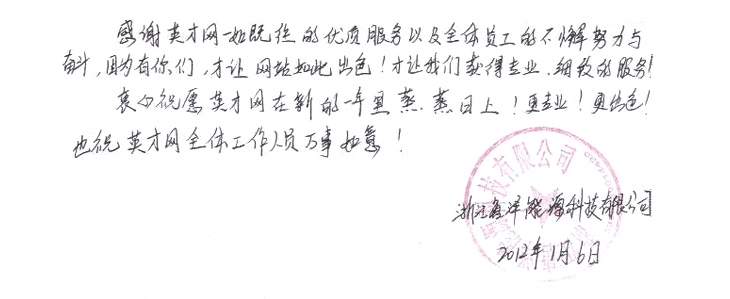 感谢英才网一如既往的优质服务以及全体员工的不懈努力与
奋斗,因为有你们,才让网站如此出色!才让我们获得专业、细致的服务!
衷心祝愿英才网在新的一年里蒸蒸日上!更专业!更出色!
也祝英才网全体工作人员万事如意!
技有限公司
浙江鑫洋能源科技有限公司
2012年1月6日